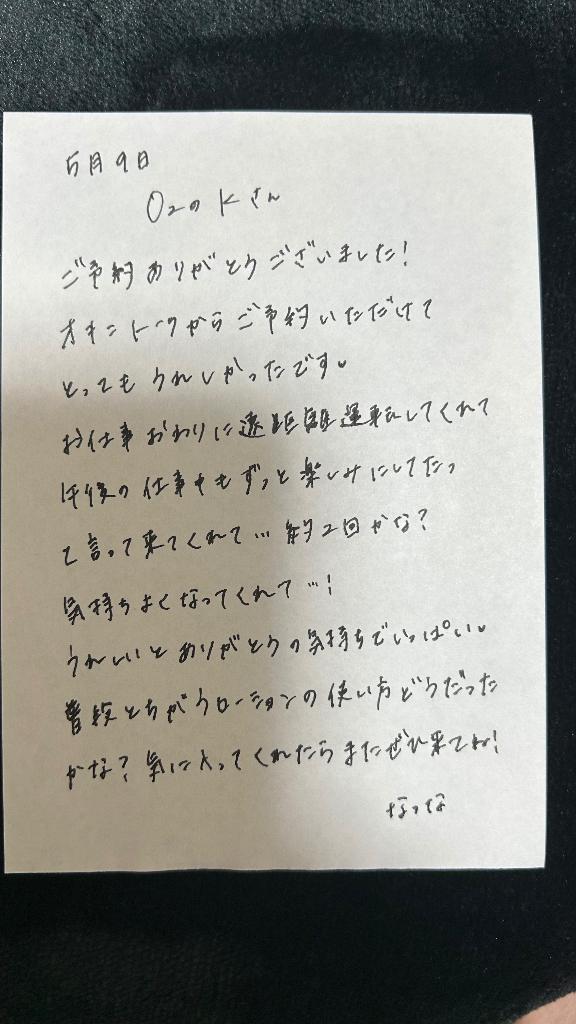 5月9日
O2のKさん
ご予約ありがとうございました!
オキニトークからご予約いただけて
とってもうれしかったです。
お仕事おわりに遠距離運転してくれて
午後の仕事中もずっと楽しみにしてたっ
て言って来てくれて…約2回かな?
気持ちよくなってくれて…!
うれしいとありがとうの気持ちでいっぱい。
普段とちがうローションの使い方どうだった
かな?気に入ってくれたらまたぜひ来てね!
なつな